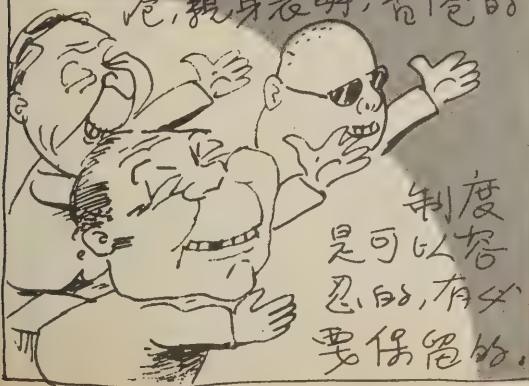 親身表明, 的
制度
是可以容
忍的,有必
要保留的.